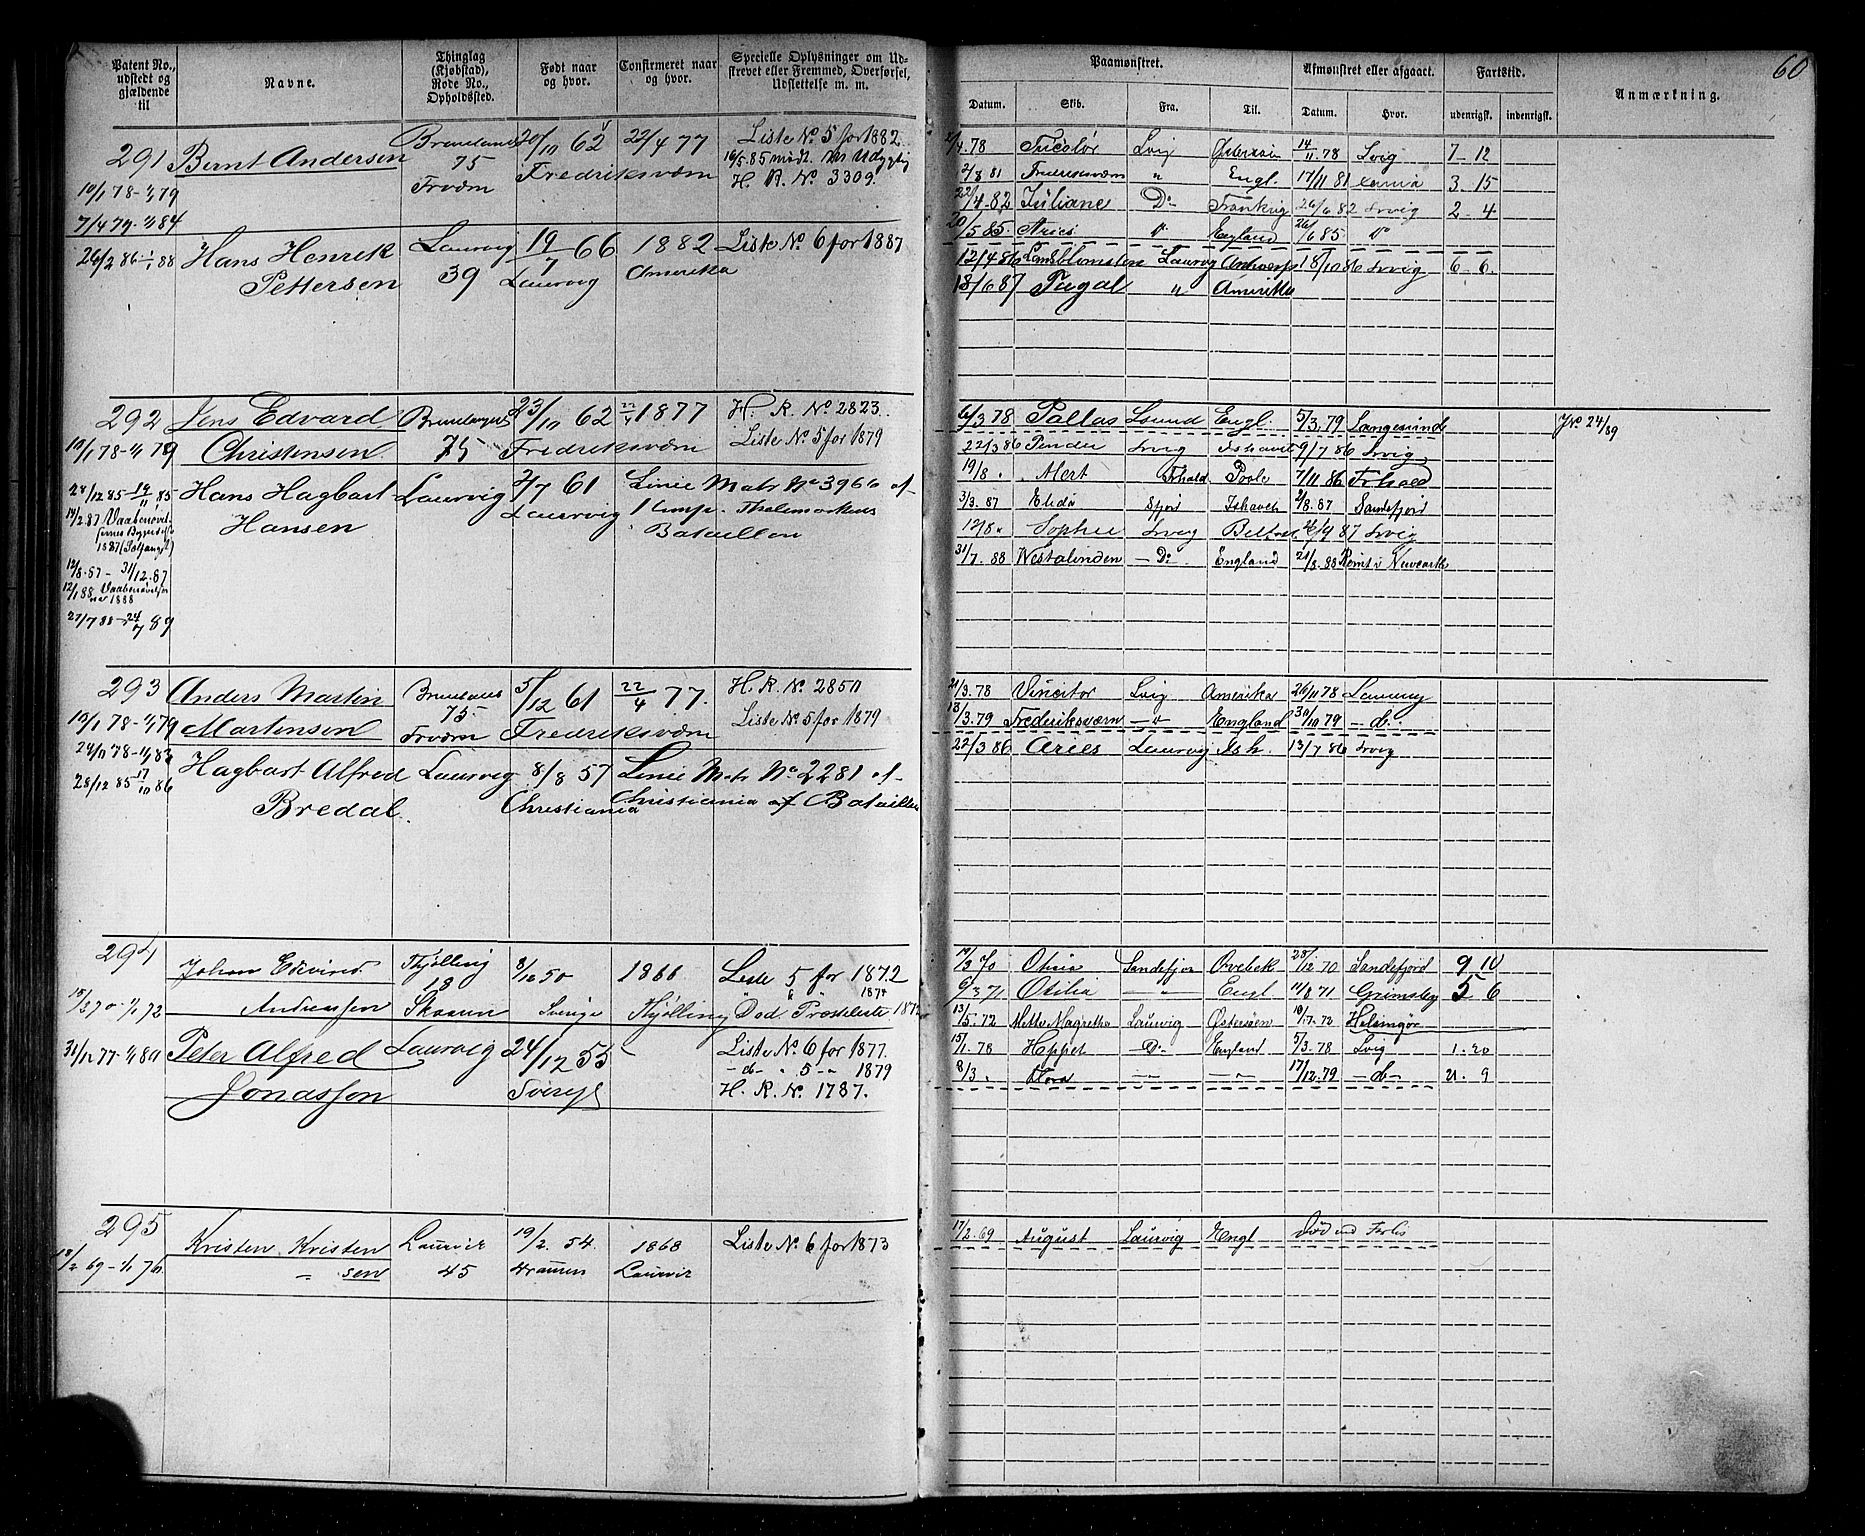 60
Patent No., udstedt og gjældende til
Navne.
Thinglag (Kjøbstad), Rode No., Opholdssted.
Født naar og hvor.
Confirmeret naar og hvor.
Specielle Oplysninger om Udskrevet eller Fremmed, Overførsel, Udslettelse m. m.
Paamønstret.
Afmønstret eller afgaaet.
Fartstid.
Anmærkning.
Datum. Skib. Fra. Til. Datum. Hvor. udenrigsk. indenrigsk.
291 Bernt Andersen 75 20/10 62 22/4 77 Liste No. 5 for 1882
Fredriksværn
H. R. No 3309.
10/1 78 - 1/1 79
7/4 79 - 1/1 84
4.78 Lvig 14/11.78 Lvig 7-12
2/8 81 Fredriksværn " Engl. 17/11 81 3. 15
22/4.82 Juliane Do Frankrig 26/6 82 Lrvig 2-4
20/5 85. Aries England 26/6 85
26/2 86 - 1/1 88 Hans Henrik Pettersen Laurvig 39 19/7 66 Laurvig 1882 Amerika Liste No 6 for 1887
12/4 86 Laurvig Antwerp 18/10 86 Lrvig 6-6.
18/6 87 Fugal " Amerika
292 Jens Edvard Christensen 75 23/10 62 Fredriksværn 22/4 1877 H. R. No 2823.
Liste No 5 for 1879
10/1 78 - 1/1 79
6/3 78 Pallas Lsund Engl. 5/3.79 Langesund J No 24/89
22/3 86 Pender Lrvig Ishavet 9/7 86 Lrvig
28/12 85 - 19/11 85 Hans Hagbart Hansen Laurvig 2/7 61 Laurvig Linie Matr No 3966 af
1 Comp. Thelemarkens
Bataillon
19/8 " Frhald Poole 7/11 86 Frhald
3/3.87 Elida Sfjord Ishavet 2/8.87 Sandefjord
12/8 " Sophie Lrvig 26/9 87 Lrvig
31/7.88 Westalinden - Do England 21/8.88 Rømt i Newcastle
12/8.87 - 31/12.87
12/1 88 Vaabenøvelser 1888
27/7 88 - 24/7 89
293 Anders Martin Martensen 75 Frværn 5/12 61 Fredriksværn 22/4 77. H. R. No. 2850
Liste No. 5 for 1879
10/1 78 - 1/1 79
24/11 78 - 1/1 83
21/3.78 Vincitor Lvig Amerika 26/11 78 Laurvig
13/3.79 Frederiksværn - " England 30/10 79 - do -
22/3 86 Aries Laurvig Ish. 13/7 86 Lrvig
28/12 85 17/10 86 Hagbart Alfred Bredal. Laurvig 8/8 57 Christiania Linie Matr No 2281 af
Christiania Bataillon
294 Johan Edvind Andreassen Thjølling 18 8/12 50 Sverige 1866 Thjølling Liste 5 for 1872
" 6 " 1874
Død Prostiliste
15/3 70 - 1/1 72
Otilia Sandefjor 28/12 70 Sandefjord 9 10
9/3 71 Otilia - " - Engl Grimsby 5 6
13/5.72 Mette Magretha Laurvig Østersøen Helsingør
31/12 77 - 1/1 80 Peter Alfred Jonassen Laurvig 24/12 55 Sverige Liste No. 6 for 1877.
- do - " 5 - " 1879
H. R. No. 1787.
15/1.78 Heppet - Do - England 5/3.78 Lvig 1. 20
8/3 " Flora - " - - " - 17/12.79 - do - 21. 9
295 Kristen Kristensen Laurvik 45 19/2. 54. 1868 Laurvik Liste No. 6 for 1873
18/2 69 - 1/1 76
17/2.69 August Laurvig Engl Død